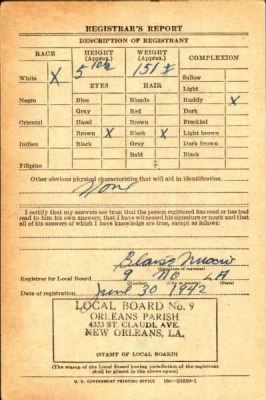 REGISTRAR'S REPORT
DESCRIPTION OF REGISTRANT
RACE HEIGHT (Approx.) WEIGHT (Approx.) COMPLEXION
5 10½ 151 #
White X EYES HAIR Sallow
Light
Negro Blue Blonde Ruddy X
Gray Red Dark
Oriental Hazel Brown Freckled
Brown X Black X Light brown
Indian Black Gray Dark brown
Bald Black
Filipino
Other obvious physical characteristics that will aid in identification.
None
I certify that my answers are true; that the person registered has read or has had
read to him his own answers; that I have witnessed his signature or mark and that
all of his answers of which I have knowledge are true, except as follows:
(Signature of registrar)
Registrar for Local Board 9 NO LA
Date of registration June 30 1942
LOCAL BOARD No. 9
ORLEANS PARISH
4323 ST. CLAUDE AVE.
NEW ORLEANS, LA.
(STAMP OF LOCAL BOARD)
(The stamp of the Local Board having jurisdiction of the registrant
shall be placed in the above space)
U. S. GOVERNMENT PRINTING OFFICE